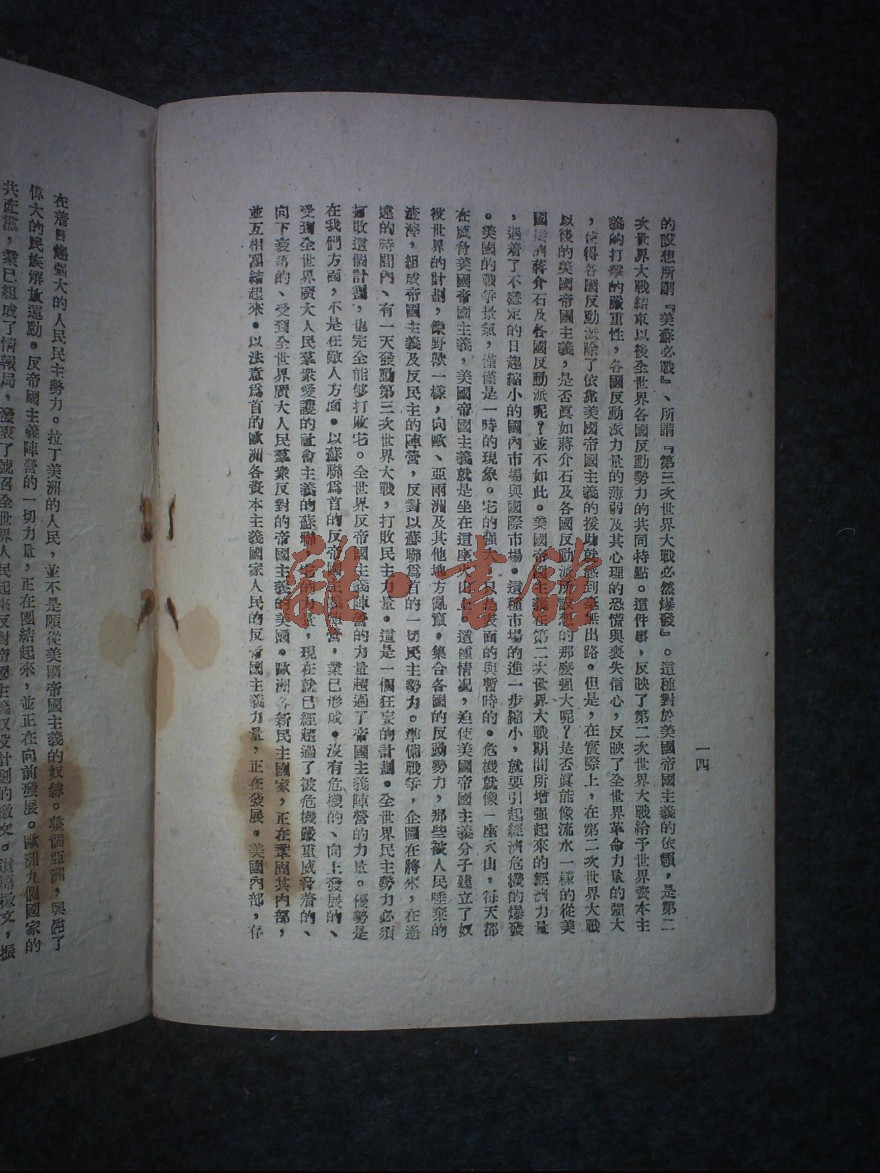 一四
的設想所謂『美蘇必戰』、所謂『第三次世界大戰必然爆發』。這種對於美國帝國主義的依賴，是第二
次世界大戰結束以後全世界各國反動勢力的共同特點。這件事，反映了第二次世界大戰給予世界資本主
義的打擊的嚴重性，各國反動派力量的薄弱及其心理的恐慌與喪失信心，反映了全世界革命力量的强大
，使得各國反動派除了依靠美國帝國主義的援助就感到毫無出路。但是，在實際上，在第二次世界大戰
以後的美國帝國主義，是否眞如蔣介石及各國反動派所設想的那麼强大呢？是否眞能像流水一樣的從美
國接濟蔣介石及各國反動派呢？並不如此。美國帝國主義在第二次世界大戰期間所增强起來的經濟力量
，遇着了不穩定的日趨縮小的國內市塲與國際市塲。這種市塲的進一步縮小，就要引起經濟危機的爆發
。美國的戰爭景氣，僅僅是一時的現象。它的强大，只是表面的與暫時的。危機就像一座火山，每天都
在威脅美國帝國主義，美國帝國主義就是坐在這座火山上。這種情况，迫使美國帝國主義分子建立了奴
役世界的計劃，像野獸一樣，向歐、亞兩洲及其他地方亂竄，集合各國的反動勢力，那些被人民唾棄的
渣滓，組成帝國主義及反民主的陣營，反對以蘇聯爲首的一切民主勢力。準備戰爭，企圖在將來，在遙
遠的時間內、有一天發動第三次世界大戰，打敗民主力量。這是一個狂妄的計劃。全世界民主勢力必須
打敗這個計劃，也完全能够打敗它。全世界反帝國主義陣營的力量超過了帝國主義陣營的力量。優勢是
在我們方面，不是在敵人方面。以蘇聯爲首的反帝國主義陣營，業已形成。沒有危機的、向上發展的、
受到全世界廣大人民羣衆愛護的社會主義的蘇聯，它的力量，現在就已經超過了被危機嚴重威脅着的、
向下衰落的、受到全世界廣大人民羣衆反對的帝國主義的美國。歐洲各新民主國家，正在鞏固其內部，
並互相團結起來。以法意爲首的歐洲各資本主義國家人民的反帝國主義力量，正在發展。美國內部，存
在着日趨强大的人民民主勢力。拉丁美洲的人民，並不是順從美國帝國主義的奴隸。整個亞洲，興起了
偉大的民族解放運動。反帝國主義陣營的一切力量，正在團結起來，並正在向前發展。歐洲九個國家的
共產黨，業已組成了情報局，發表了號召全世界人民起來反對帝國主義奴役計劃的檄文。這篇檄文，振
雜·書館